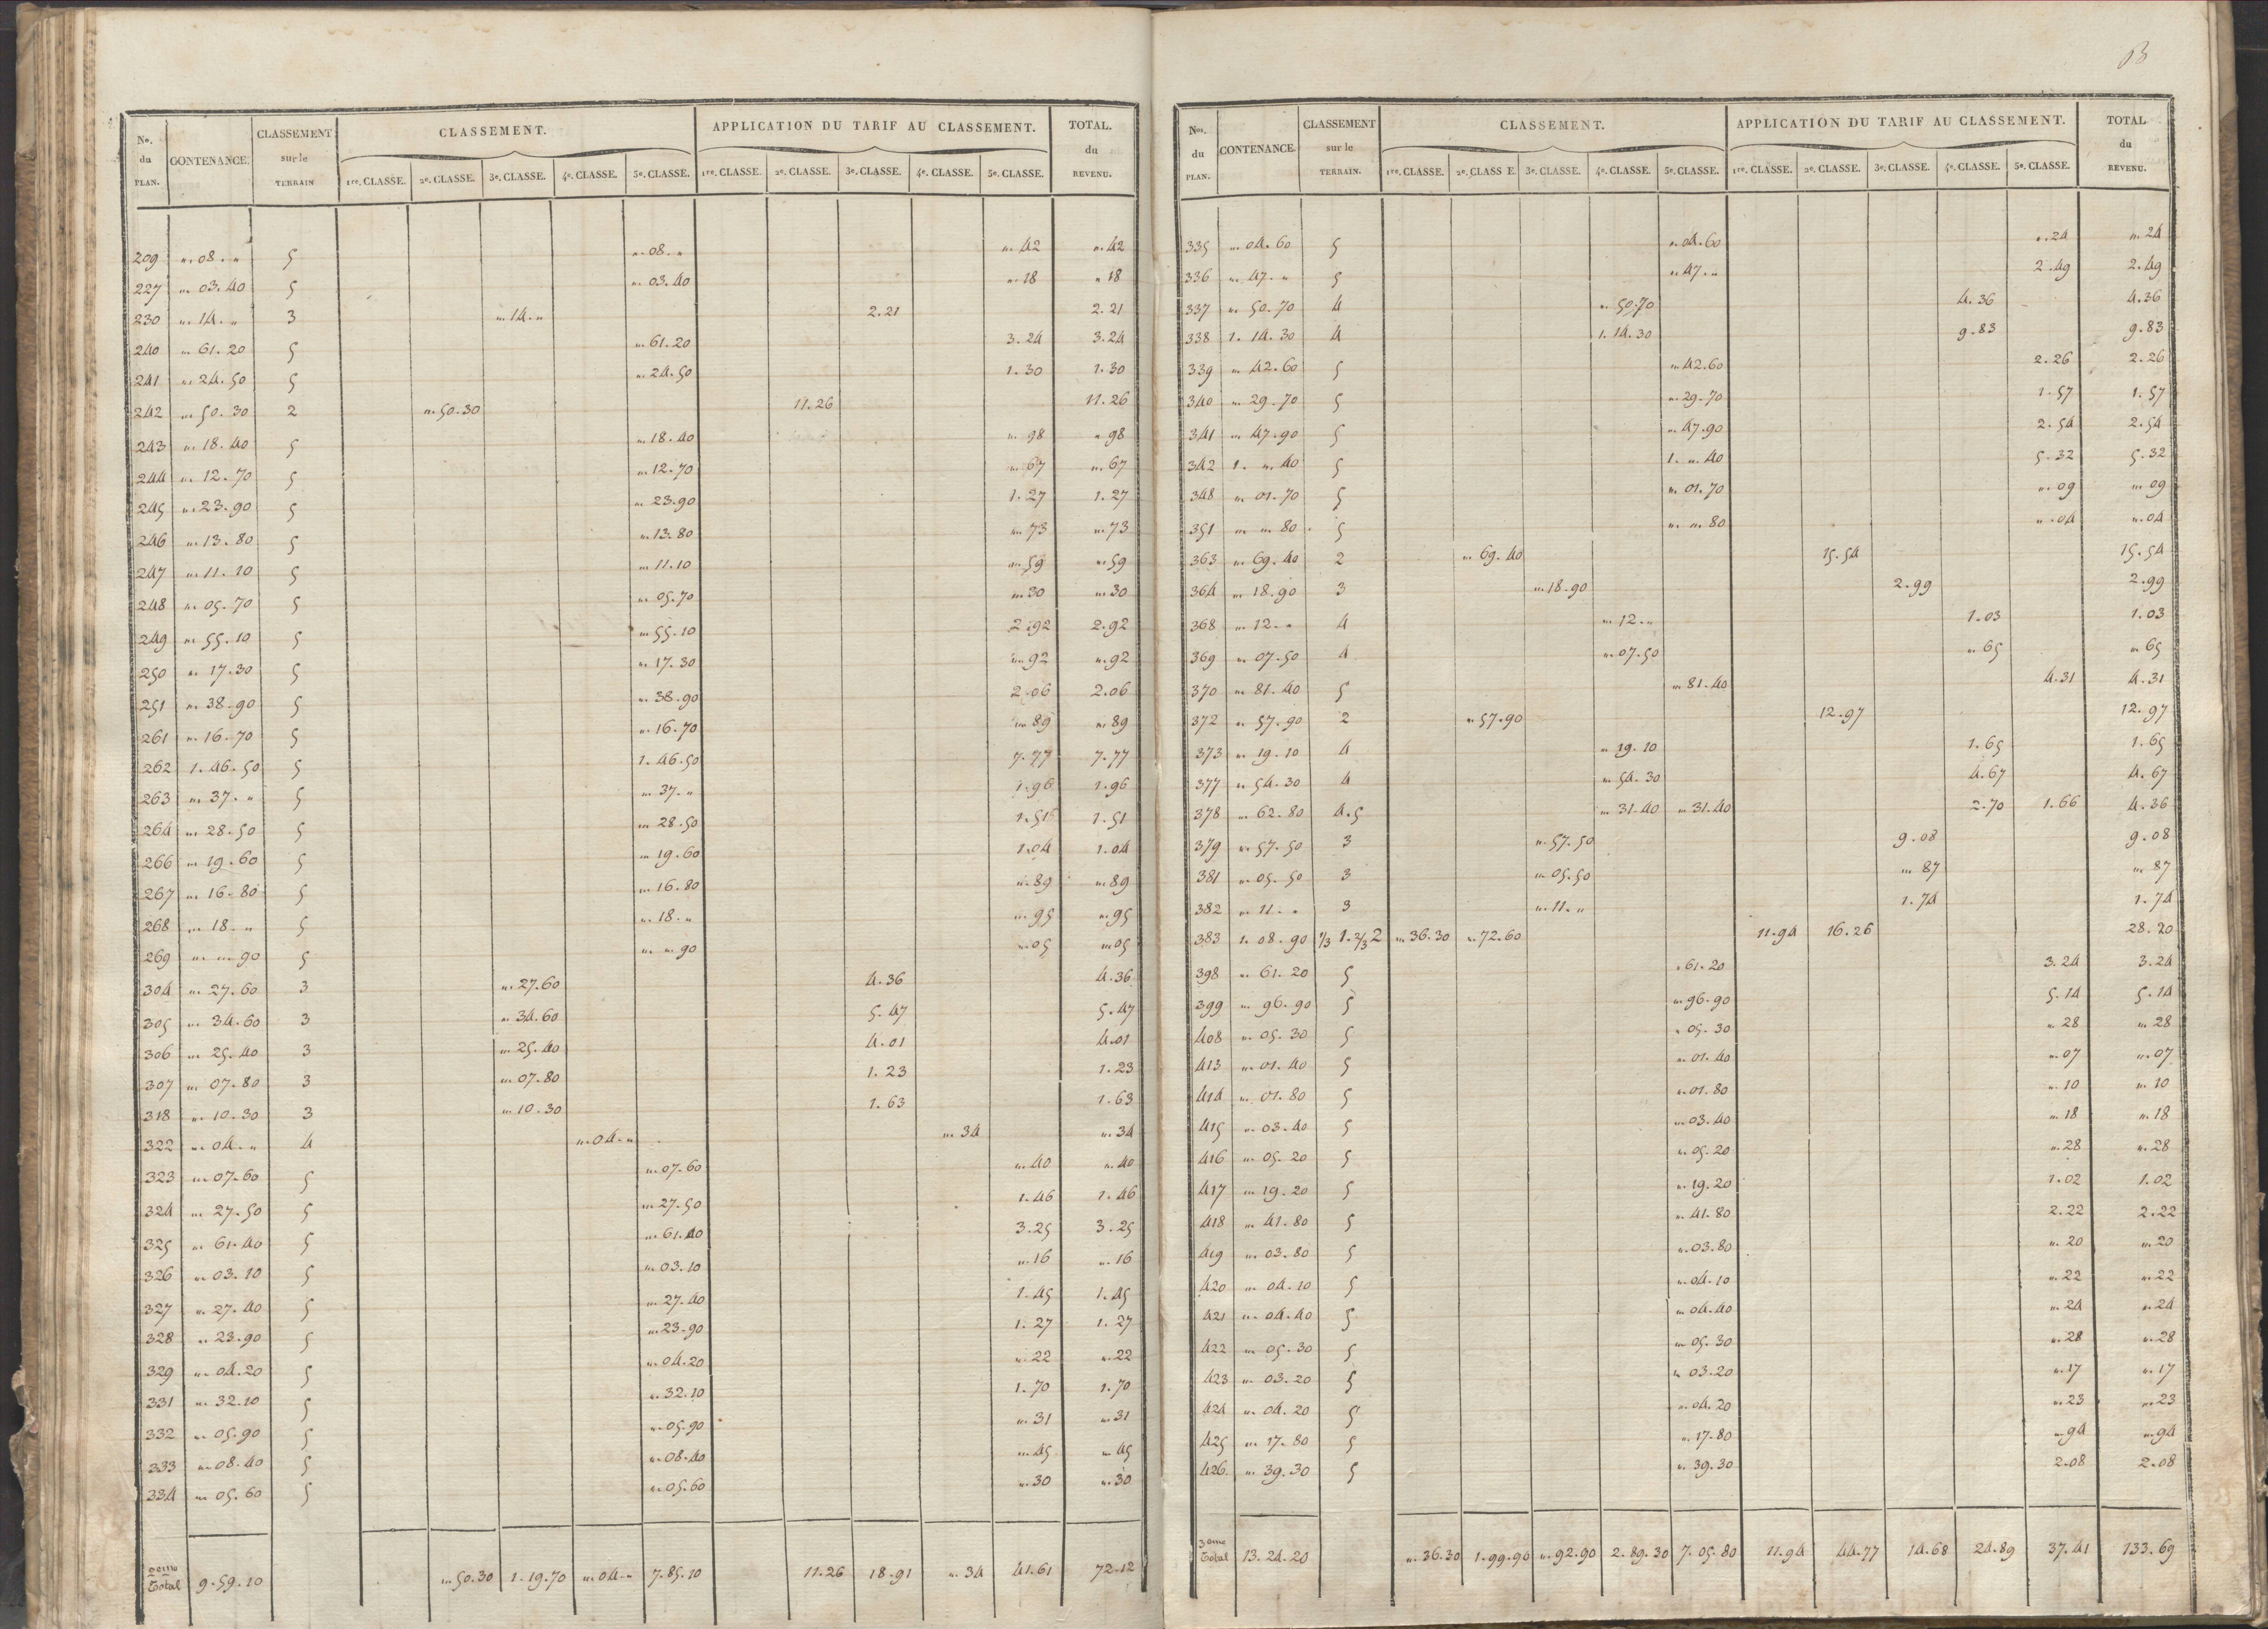 B
Nos. du PLAN. CONTENANCE. CLASSEMENT sur le TERRAIN CLASSEMENT. 1re. CLASSE. 2e. CLASSE. 3e. CLASSE. 4e. CLASSE. 5e. CLASSE. APPLICATION DU TARIF AU CLASSEMENT. 1re. CLASSE. 2e. CLASSE. 3e. CLASSE. 4e. CLASSE. 5e. CLASSE. TOTAL. du REVENU.
209 „. 08. „ 5 „. 08. „ „. 42 „. 42
227 „. 03. 40 5 „. 03. 40 „. 18 „. 18
230 „. 14. „ 3 „. 14. „ 2. 21 2. 21
240 „. 61. 20 5 „. 61. 20 3. 24 3. 24
241 „. 24. 50 5 „. 24. 50 1. 30 1. 30
242 „. 50. 30 2 „. 50. 30 11. 26 11. 26
243 „. 18. 40 5 „. 18. 40 „. 98 „. 98
244 „. 12. 70 5 „. 12. 70 „. 67 „. 67
245 „. 23. 90 5 „. 23. 90 1. 27 1. 27
246 „. 13. 80 5 „. 13. 80 „. 73 „. 73
247 „. 11. 10 5 „. 11. 10 „. 59 „. 59
248 „. 05. 70 5 „. 05. 70 „. 30 „. 30
249 „. 55. 10 5 „. 55. 10 2. 92 2. 92
250 „. 17. 30 5 „. 17. 30 „. 92 „. 92
251 „. 38. 90 5 „. 38. 90 2. 06 2. 06
261 „. 16. 70 5 „. 16. 70 „. 89 „. 89
262 1. 46. 50 5 1. 46. 50 7. 77 7. 77
263 „. 37. „ 5 „. 37. „ 1. 96 1. 96
264 „. 28. 50 5 „. 28. 50 1. 51 1. 51
266 „. 19. 60 5 „. 19. 60 1. 04 1. 04
267 „. 16. 80 5 „. 16. 80 „. 89 „. 89
268 „. 18. „ 5 „. 18. „ „. 95 „. 95
269 „. „. 90 5 „. „. 90 „. 05 „. 05
304 „. 27. 60 3 „. 27. 60 4. 36 4. 36
305 „. 34. 60 3 „. 34. 60 5. 47 5. 47
306 „. 25. 40 3 „. 25. 40 4. 01 4. 01
307 „. 07. 80 3 „. 07. 80 1. 23 1. 23
318 „. 10. 30 3 „. 10. 30 1. 63 1. 63
322 „. 04. „ 4 „. 04. „ „. 34 „. 34
323 „. 07. 60 5 „. 07. 60 „. 40 „. 40
324 „. 27. 50 5 „. 27. 50 1. 46 1. 46
325 „. 61. 40 5 „. 61. 40 3. 25 3. 25
326 „. 03. 10 5 „. 03. 10 „. 16 „. 16
327 „. 27. 40 5 „. 27. 40 1. 45 1. 45
328 „. 23. 90 5 „. 23. 90 1. 27 1. 27
329 „. 04. 20 5 „. 04. 20 „. 22 „. 22
331 „. 32. 10 5 „. 32. 10 1. 70 1. 70
332 „. 05. 90 5 „. 05. 90 „. 31 „. 31
333 „. 08. 40 5 „. 08. 40 „. 45 „. 45
334 „. 05. 60 5 „. 05. 60 „. 30 „. 30
2eme Total 9. 59. 10 „. 50. 30 1. 19. 70 „. 04. „ 7. 85. 10 11. 26 18. 91 „. 34 41. 61 72. 12
Nos. du PLAN. CONTENANCE. CLASSEMENT sur le TERRAIN. CLASSEMENT. 1re. CLASSE. 2e. CLASS E. 3e. CLASSE. 4e. CLASSE. 5e. CLASSE. APPLICATION DU TARIF AU CLASSEMENT. 1re. CLASSE. 2e. CLASSE. 3e. CLASSE. 4e. CLASSE. 5e. CLASSE. TOTAL du REVENU.
335 „. 04. 60 5 „. 04. 60 „. 24 „. 24
336 „. 47. „ 5 „. 47. „ 2. 49 2. 49
337 „. 50. 70 4 „. 50. 70 4. 36 4. 36
338 1. 14. 30 4 1. 14. 30 9. 83 9. 83
339 „. 42. 60 5 „. 42. 60 2. 26 2. 26
340 „. 29. 70 5 „. 29. 70 1. 57 1. 57
341 „. 47. 90 5 „. 47. 90 2. 54 2. 54
342 1. „. 40 5 1. „. 40 5. 32 5. 32
348 „. 01. 70 5 „. 01. 70 „. 09 „. 09
351 „. „. 80 5 „. „. 80 „. 04 „. 04
363 „. 69. 40 2 „. 69. 40 15. 54 15. 54
364 „. 18. 90 3 „. 18. 90 2. 99 2. 99
368 „. 12. „ 4 „. 12. „ 1. 03 1. 03
369 „. 07. 50 4 „. 07. 50 „. 65 „. 65
370 „. 81. 40 5 „. 81. 40 4. 31 4. 31
372 „. 57. 90 2 „. 57. 90 12. 97 12. 97
373 „. 19. 10 4 „. 19. 10 1. 65 1. 65
377 „. 54. 30 4 „. 54. 30 4. 67 4. 67
378 „. 62. 80 4. 5 „. 31. 40 „. 31. 40 2. 70 1. 66 4. 36
379 „. 57. 50 3 „. 57. 50 9. 08 9. 08
381 „. 05. 50 3 „. 05. 50 „. 87 „. 87
382 „. 11. „ 3 „. 11. „ 1. 74 1. 74
383 1. 08. 90 1/3 1. 2/3 2 „. 36. 30 „. 72. 60 11. 94 16. 26 28. 20
398 „. 61. 20 5 „. 61. 20 3. 24 3. 24
399 „. 96. 90 5 „. 96. 90 5. 14 5. 14
408 „. 05. 30 5 „. 05. 30 „. 28 „. 28
413 „. 01. 40 5 „. 01. 40 „. 07 „. 07
414 „. 01. 80 5 „. 01. 80 „. 10 „. 10
415 „. 03. 40 5 „. 03. 40 „. 18 „. 18
416 „. 05. 20 5 „. 05. 20 „. 28 „. 28
417 „. 19. 20 5 „. 19. 20 1. 02 1. 02
418 „. 41. 80 5 „. 41. 80 2. 22 2. 22
419 „. 03. 80 5 „. 03. 80 „. 20 „. 20
420 „. 04. 10 5 „. 04. 10 „. 22 „. 22
421 „. 04. 40 5 „. 04. 40 „. 24 „. 24
422 „. 05. 30 5 „. 05. 30 „. 28 „. 28
423 „. 03. 20 5 „. 03. 20 „. 17 „. 17
424 „. 04. 20 5 „. 04. 20 „. 23 „. 23
425 „. 17. 80 5 „. 17. 80 „. 94 „. 94
426 „. 39. 30 5 „. 39. 30 2. 08 2. 08
3eme Total 13. 24. 20 „. 36. 30 1. 99. 90 „. 92. 90 2. 89. 30 7. 05. 80 11. 94 44. 77 14. 68 24. 89 37. 41 133. 69